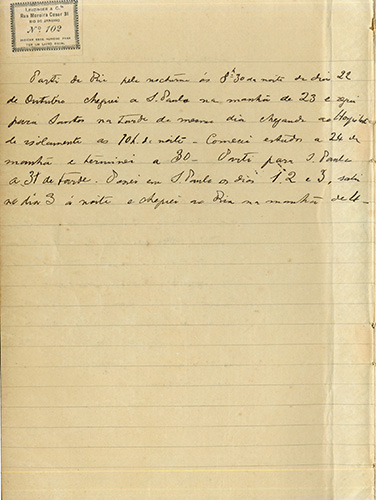 LEUZINGER & Cia
Rua Moreira Cesar 31
RIO DE JANEIRO
No 102
BASTAR ESTE NUMERO PARA
TER UM LIVRO EGUAL
Parti do Rio pelo nocturno ás 8h 30 da noite do dia 22
de Outubro cheguei a S. Paulo na manhã de 23 e segui
para Santos na tarde do mesmo dia chegando ao Hospital
de isolamento as 10h. da noite - Comecei estudos a 24 de
manhã e terminei a 30 - Parti para S. Paulo
a 31 de tarde. Passei em S. Paulo os dias 1º 2 e 3, sahi
no dia 3 á noite e cheguei ao Rio na manhã de 4 -